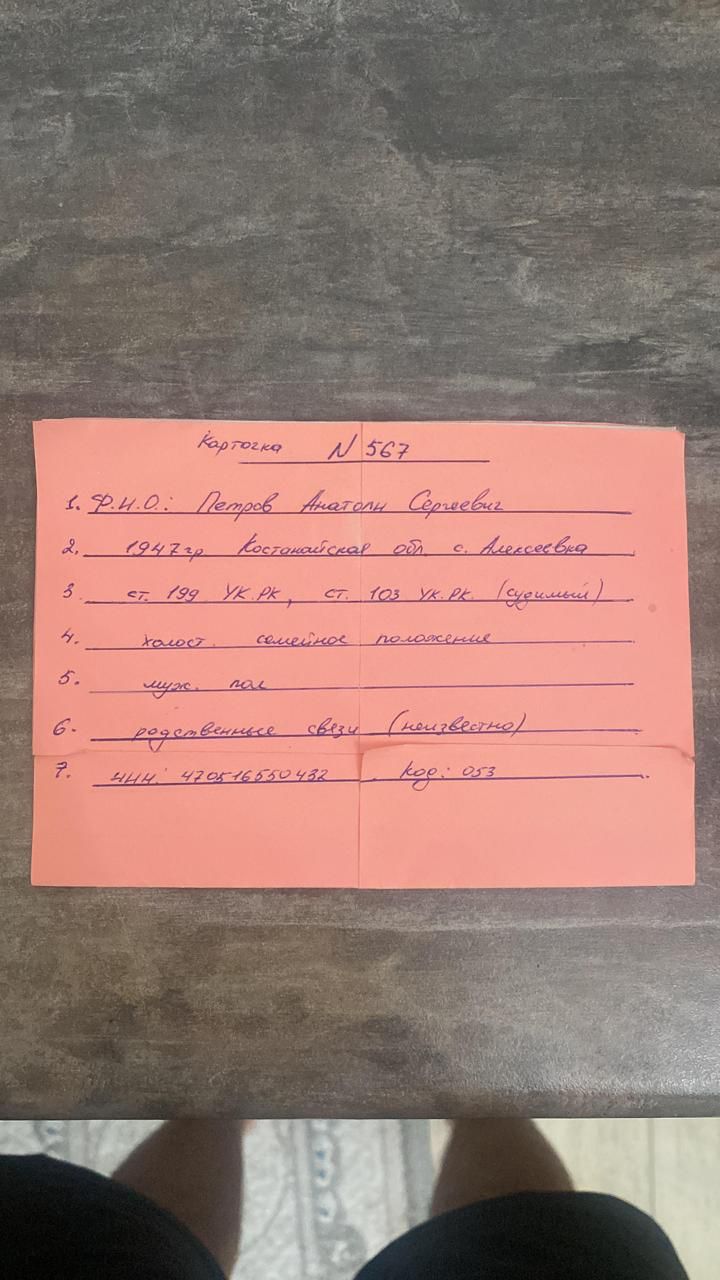 Карточка N 567
1. Ф.И.О.: Петров Анатоли Сергеевич
2. 1947гр Костанайская обл. с. Алексеевка
3. ст. 199 УК.РК, ст. 103 УК.РК. (судимый)
4. холост. семейное положение
5. муж. пол
6. родственные связи (неизвестно)
7. ИИН: 470516550432. Код: 053